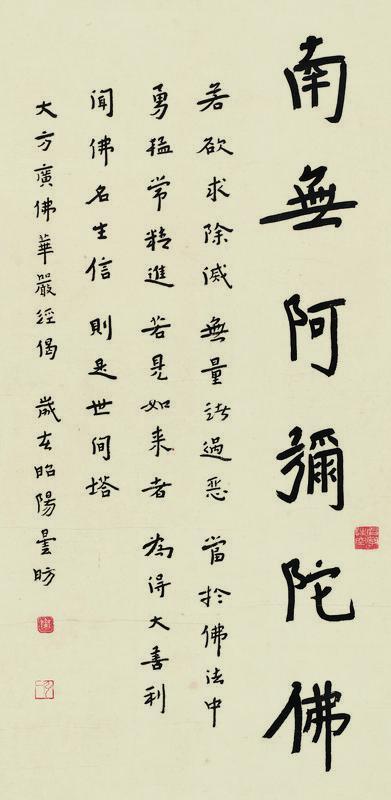 南無阿彌陀佛
若欲求除滅無量諸過惡當於佛法中
勇猛常精進若見如來者為得大善利
聞佛名生信則是世间塔
大方廣佛華嚴經偈 歲在昭陽曇昉